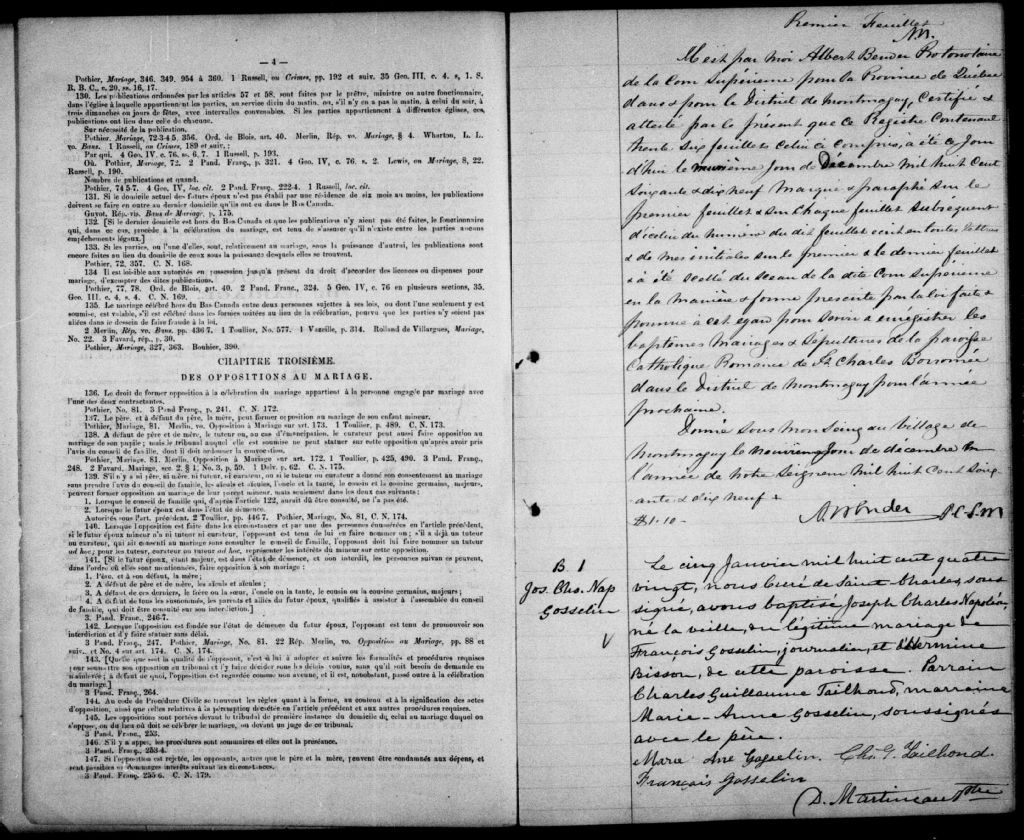 — 4 —
Pothier, Mariage, 346. 349. 954 à 360. 1 Russell, on Crimes, pp. 192 et suiv. 35 Geo. III, c. 4. s, 1. S.
R. B. C., c. 20, ss. 16, 17.
130. Les publications ordonnées par les articles 57 et 58, sont faites par le prêtre, ministre ou autre fonctionnaire,
dans l'église à laquelle appartiennent les parties, au service divin du matin, ou, s'il n'y en a pas le matin, à celui du soir, à
trois dimanches ou jours de fêtes, avec intervalles convenables. Si les parties appartiennent à différentes églises, ces
publications ont lieu dans celle de chacune.
Sur nécessité de la publication.
Pothier, Mariage, 72-3-4 5, 356. Ord. de Blois, art. 40. Merlin, Rép. vo. Mariage, § 4. Wharton, L. L.
vo. Bans. 1 Russell, on Crimes, 189 et suiv. ;
Par qui. 4 Geo. IV, c. 76, ss. 6, 7. 1 Russell, p. 193.
Où. Pothier, Mariage, 72. 2 Pand. Franç., p. 321. 4 Geo. IV, c. 76. s. 2. Lewis, on Mariage, 8, 22.
Russell, p. 190.
Nombre de publications et quand.
Pothier, 74 5-7. 4 Geo. IV, loc. cit. 2 Pand. Franç. 222-4. 1 Russell, loc. cit.
131. Si le domicile actuel des futurs époux n'est pas établi par une résidence de six mois au moins, les publications
doivent se faire en outre au dernier domicile qu'ils ont eu dans le Bas-Canada.
Guyot. Rép. vis. Bans de Mariage, p. 175.
132. [Si le dernier domicile est hors du Bas Canada et que les publications n'y aient pas été faites, le fonctionnaire
qui, dans ce cas, procède à la célébration du mariage, est tenu de s'assurer qu'il n'existe entre les parties aucuns
empêchements légaux.]
133. Si les parties, ou l'une d'elles, sont, relativement au mariage, sous la puissance d'autrui, les publications sont
encore faites au lieu du domicile de ceux sous la puissance desquels elles se trouvent.
Pothier, 72, 357. C. N. 168.
134 Il est loisible aux autorités en possession jusqu'à présent du droit d'accorder des licences ou dispenses pour
mariage, d'exempter des dites publications.
Pothier, 77, 78. Ord. de Blois, art. 40. 2 Pand. Franc., 324. 5 Geo. IV, c. 76 en plusieurs sections, 35.
Geo. III. c. 4, s. 4. C. N. 169.
135. Le mariage célébré hors du Bas-Canada entre deux personnes sujettes à ses lois, ou dont l'une seulement y est
soumise, est valable, s'il est célébré dans les formes usitées au lieu de la célébration, pourvu que les parties n'y soient pas
allées dans le dessein de faire fraude à la loi.
2 Merlin, Rép. vo. Bans. pp. 436 7. 1 Toullier, No. 577. 1 Vazeille, p. 314. Rolland de Villargues, Mariage,
No. 22. 3 Favard, rép., p. 30.
Pothier, Mariage, 327, 363. Bouhier, 390.
CHAPITRE TROISIÈME.
DES OPPOSITIONS AU MARIAGE.
136. Le droit de former opposition à la célébration du mariage appartient à la personne engagée par mariage avec
l'une des deux contractantes.
Pothier, No. 81. 3 Pand Franç., p. 241. C. N. 172.
137. Le père, et à défaut du père, la mère, peut former opposition au mariage de son enfant mineur.
Pothier, Mariage, 81. Merlin, vo. Opposition à Mariage sur art. 173. 1 Toullier, p. 489. C. N. 173.
138. A défaut de père et de mère, le tuteur, ou, au cas d'émancipation, le curateur peut aussi faire opposition au
mariage de son pupille ; mais le tribunal auquel elle est soumise ne peut statuer sur cette opposition qu'après avoir pris
l'avis du conseil de famille, dont il doit ordonner la convocation.
Pothier, Mariage, 81. Merlin, Opposition à Mariage sur art. 172, 1 Toullier, p. 425, 490. 3 Pand. Franç.,
248. 2 Favard, Mariage, sec. 2, § 1, No. 3, p. 59. 1 Delv. p. 62. C. N. 175.
139. S'il n'y a ni père, ni mère, ni tuteur, ni curateur, ou si le tuteur ou curateur a donné son consentement au mariage
sans prendre l'avis du conseil de famille, les aïeuls et aïeules, l'oncle et la tante, le cousin et la cousine germains, majeurs,
peuvent former opposition au mariage de leur parent mineur, mais seulement dans les deux cas suivants :
1. Lorsque le conseil de famille qui, d'après l'article 122, aurait dû être consulté, ne l'a pas été.
2. Lorsque le futur époux est dans l'état de démence.
Autorités sous l'art. précédent. 2 Toullier, pp. 446 7. Pothier, Mariage, No. 81, C. N. 174.
140. Lorsque l'opposition est faite dans les circonstances et par une des personnes énumérées en l'article précédent,
si le futur époux mineur n'a ni tuteur ni curateur, l'opposant est tenu de lui en faire nommer un ; s'il a déjà un tuteur
ou curateur, qui ait consenti au mariage sans consulter le conseil de famille, l'opposant doit lui faire nommer un tuteur
ad hoc ; pour les tuteur, curateur ou tuteur ad hoc, représenter les intérêts du mineur sur cette opposition.
141. [Si le futur époux, étant majeur, est dans l'état de démence, et non interdit, les personnes suivantes peuvent,
dans l'ordre où elles sont mentionnées, faire opposition à son mariage :
1. Père, et à son défaut, la mère ;
2. A défaut de père et de mère, les aïeuls et aïeules ;
3. A défaut de ces derniers, le frère ou la sœur, l'oncle ou la tante, le cousin ou la cousine germains, majeurs ;
4. A défaut de tous les susnommés, les parents et alliés du futur époux, qualifiés à assister à l'assemblée du conseil
de famille, qui doit être consulté sur son interdiction.]
3. Pand. Franç., 246-7.
142. Lorsque l'opposition est fondée sur l'état de démence du futur époux, l'opposant est tenu de promouvoir son
interdiction et d'y faire statuer sans délai.
3 Pand. Franç., 247. Pothier, Mariage, No. 81. 22 Rép. Merlin, vo. Opposition au Mariage, pp. 88 et
suiv., et No. 4 sur art. 174. C. N. 174.
143. [Quelle que soit la qualité de l'opposant, c'est à lui à adopter et suivre les formalités et procédures requises
pour soumettre son opposition au tribunal et l'y faire décider sous les délais voulus, sans qu'il soit besoin de demande en
mainlevée ; à défaut de quoi, l'opposition est regardée comme non avenue, et il est, nonobstant, passé outre à la célébration
du mariage.]
3 Pand. Franç., 264.
144. Au code de Procédure Civile se trouvent les règles quant à la forme, au contenu et à la signification des actes
d'opposition, ainsi que celles relatives à la péremption décrétée en l'article précédent et aux autres procédures requises.
145. Les oppositions sont portées devant le tribunal de première instance du domicile de celui au mariage duquel on
s'oppose, ou du lieu où doit se célébrer le mariage, ou devant un juge de ce tribunal.
3 Pand. Franç., 253.
146. S'il y a appel, les procédures sont sommaires et elles ont la préséance.
3 Pand. Franç., 253-4.
147. Si l'opposition est rejetée, les opposants, autres que le père et la mère, peuvent être condamnés aux dépens, et
sont passibles de dommages intérêts suivant les circonstances.
3 Pand. Franç. 255 6. C. N. 179.
Premier Feuillet
Me est par moi Albert Bender Protonotaire
de la Cour Supérieure pour la Province de Québec
dans & pour le District de Montmagny, Certifié &
attesté par le présent que ce Registre Contenant
trente Six feuillets celui ci Compris, a été ce jour
d'hui le neuvième jour de Décembre Mil huit Cent
Soixante & dix neuf Marqué & paraphé sur le
premier feuillet & sur Chaque feuillet Subséquent
d'icelui du numéro du dit feuillet écrit en toutes lettres
& de mes initiales sur le premier & le dernier feuillet
& a été scellé du Sceau de la dite Cour Supérieure
en la manière & forme prescrite par la loi faite &
pourvue à cet égard pour Servir à enregistrer les
baptêmes Mariages & Sépultures de la paroisse
Catholique Romaine de St Charles Borromée
dans le District de Montmagny pour l'année
prochaine.
Donné sous mon Seing au Village de
Montmagny le neuvième Jour de décembre en
l'année de Notre Seigneur Mil huit Cent Soix-
ante & dix neuf &
A Bender P.C.S.M
B 1
Jos. Chs. Nap
Gosselin
Le cinq Janvier mil huit cent quatre
vingt, nous Curé de Saint Charles sous-
signé, avons baptisé Joseph Charles Napoléon
né la veille, du légitime mariage de
François Gosselin, journalier, et d'Hermine
Bisson, de cette paroisse. Parrain
Charles Guillaume Tailhoud, marraine
Marie-Anne Gosselin, soussignés
avec le père.
Marie Ane Gosselin. Chs. G. Tailhoud.
François Gosselin
D. Martineau Ptre